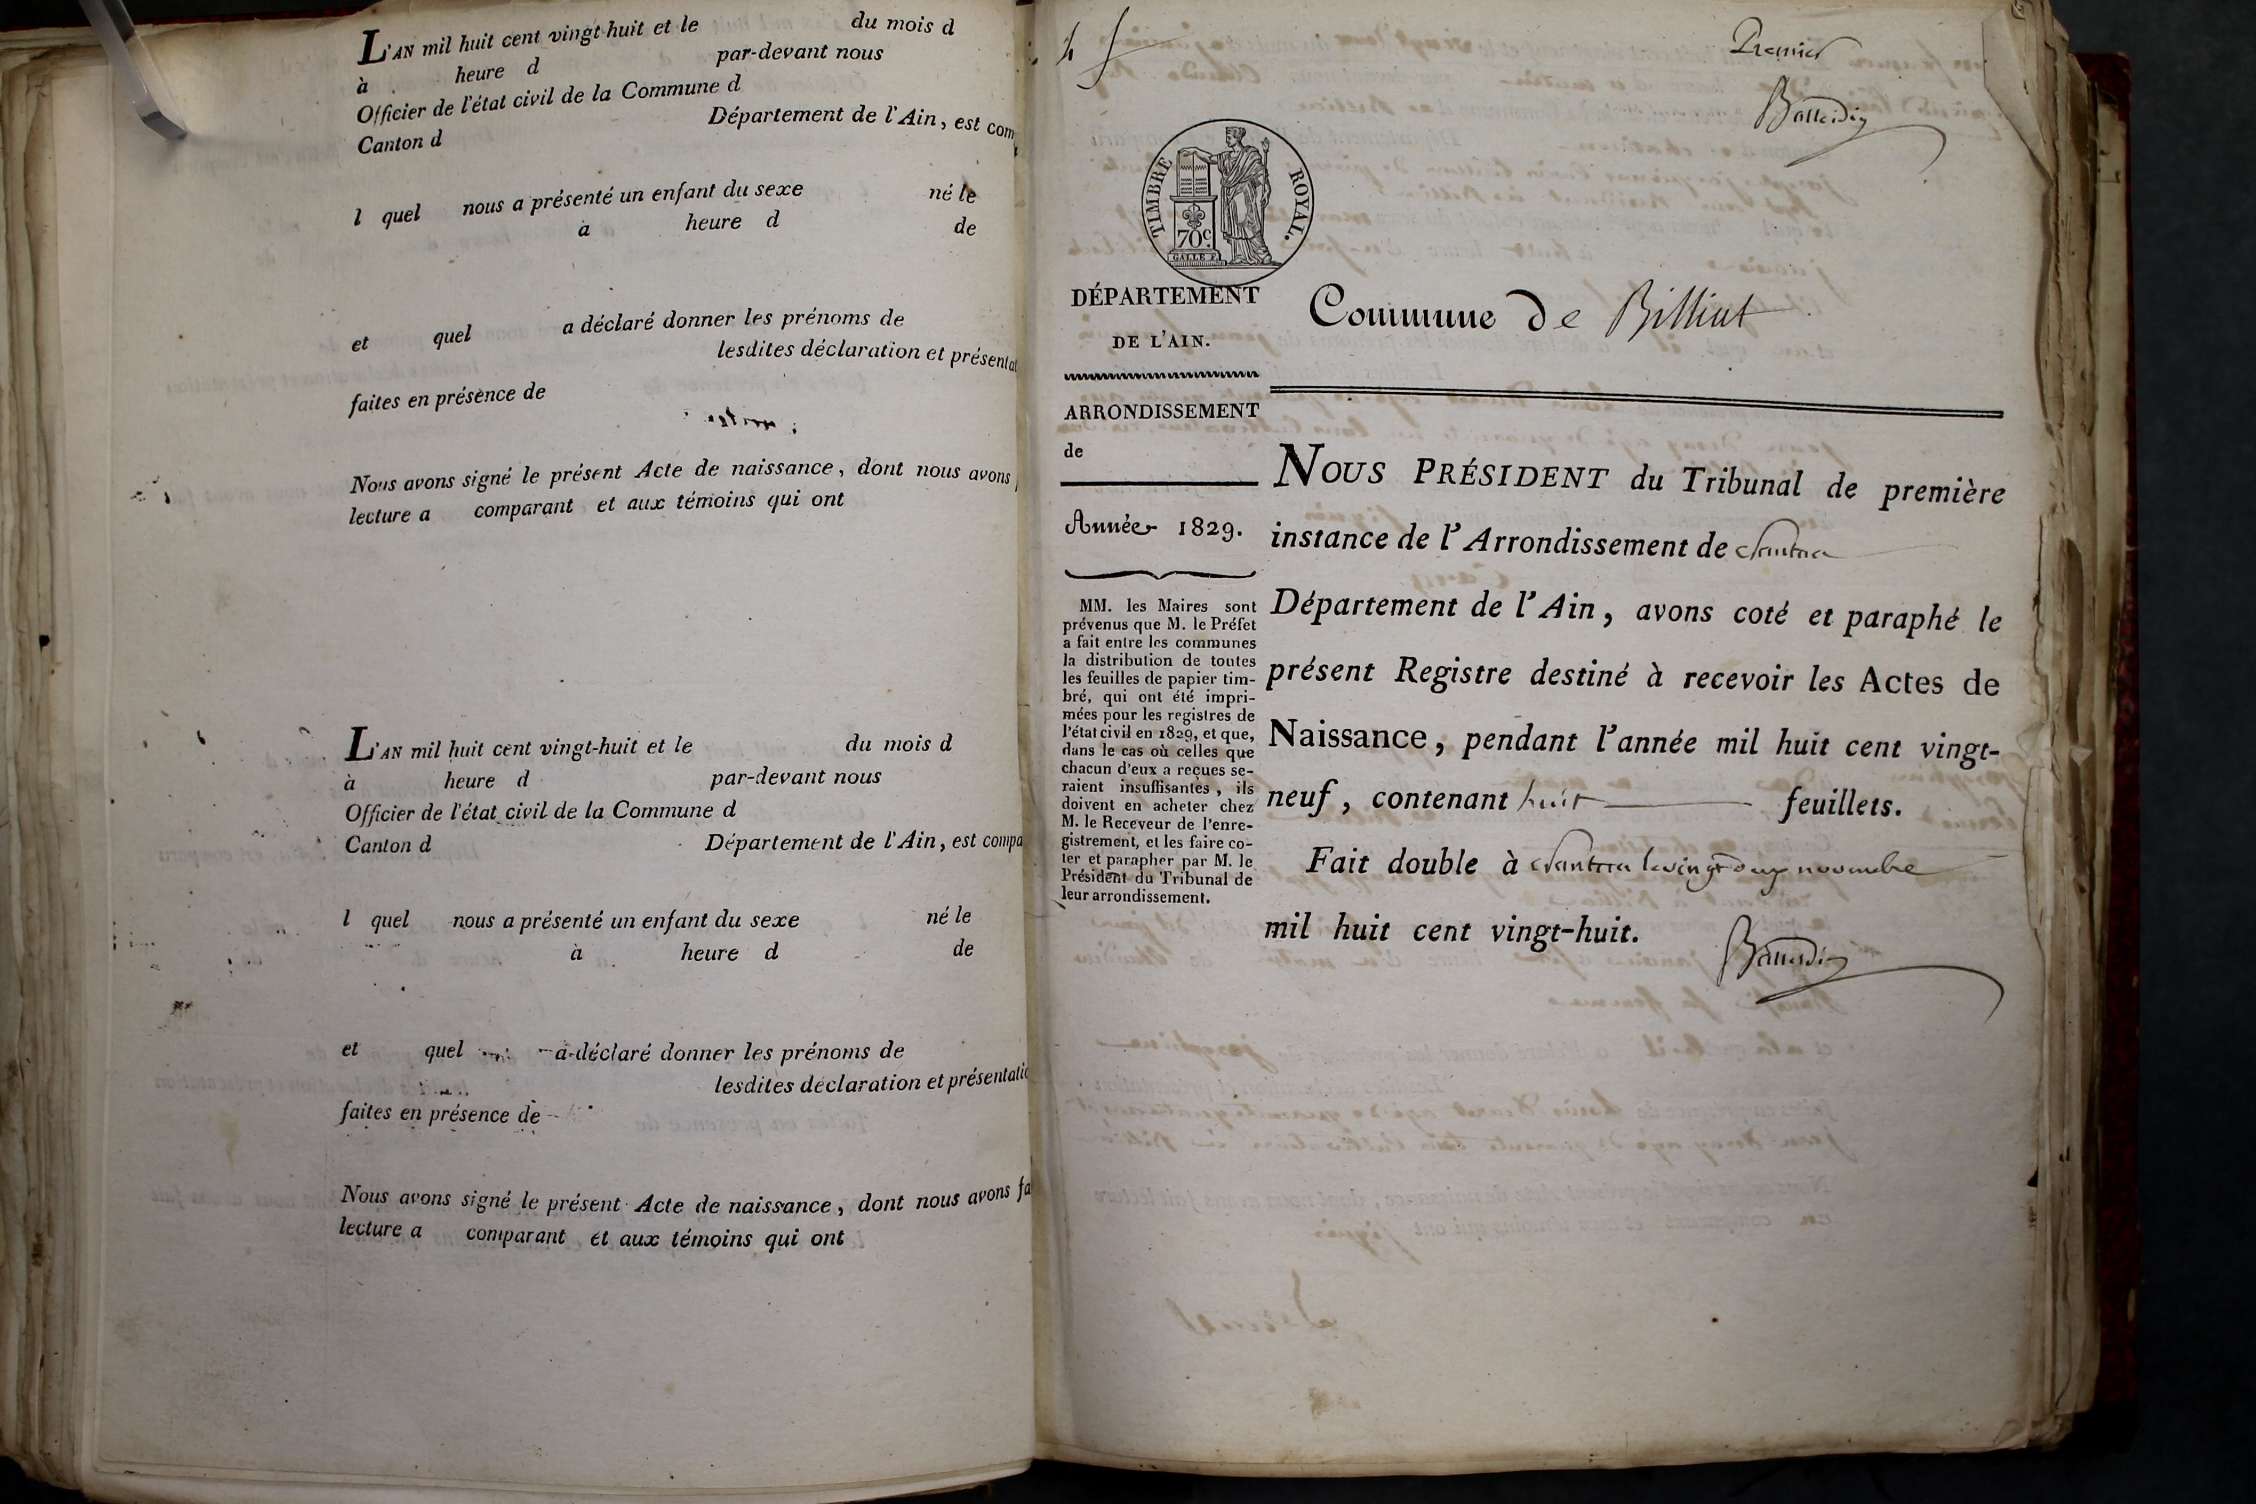 L'AN mil huit cent vingt-huit et le du mois d
à heure d par-devant nous
Officier de l'état civil de la Commune d
Canton d Département de l'Ain, est com
l quel nous a présenté un enfant du sexe né le
à heure d de
et quel a déclaré donner les prénoms de
lesdites déclaration et présentat
faites en présence de
Nous avons signé le présent Acte de naissance, dont nous avons
lecture a comparant et aux témoins qui ont
L'AN mil huit cent vingt-huit et le du mois d
à heure d par-devant nous
Officier de l'état civil de la Commune d
Canton d Département de l'Ain, est compa
l quel nous a présenté un enfant du sexe né le
à heure d de
et quel a déclaré donner les prénoms de
lesdites déclaration et présentatio
faites en présence de
Nous avons signé le présent Acte de naissance, dont nous avons fa
lecture a comparant et aux témoins qui ont
Premier
TIMBRE ROYAL.
70c.
GALLE F.
DÉPARTEMENT
DE L'AIN.
Commune de Billiat
ARRONDISSEMENT
de
Année 1829.
MM. les Maires sont
prévenus que M. le Préfet
a fait entre les communes
la distribution de toutes
les feuilles de papier tim-
bré, qui ont été impri-
mées pour les registres de
l'état civil en 1829, et que,
dans le cas où celles que
chacun d'eux a reçues se-
raient insuffisantes, ils
doivent en acheter chez
M. le Receveur de l'enre-
gistrement, et les faire co-
ter et parapher par M. le
Président du Tribunal de
leur arrondissement.
NOUS PRÉSIDENT du Tribunal de première
instance de l'Arrondissement de Nantua
Département de l'Ain, avons coté et paraphé le
présent Registre destiné à recevoir les Actes de
Naissance, pendant l'année mil huit cent vingt-
neuf, contenant huit feuillets.
Fait double à Nantua le vingt deux novembre
mil huit cent vingt-huit.